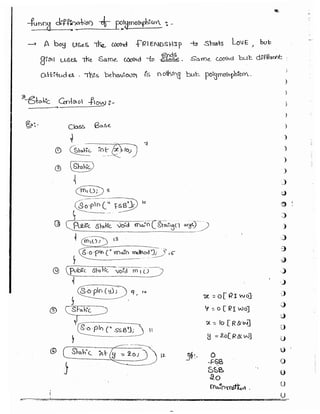 funny definition of polymorphism :-
→ A boy uses the word FRIENDSHIP to starts LOVE, but
girl uses the same word to ends. Same word but different
attitudes. This behaviour is nothing but polymorphism.
* Static control flow :-
Ex:- class Base
{
① static int x=10; 7
② static
{
m1(); 8
S.o.pln("FSB"); 10
}
③ public static void main(String[] args)
{
m1(); 13
S.o.pln("main method"); 15
}
④ public static void m1()
{
S.o.pln(y); 9, 14
}
⑤ static
{
S.o.pln("SSB"); 11
}
⑥ static int y=20; 12
}
x = 0 [RIWO]
y = 0 [RIWO]
x = 10 [R&W]
y = 20 [R&W]
0
FSB
SSB
20
main method.